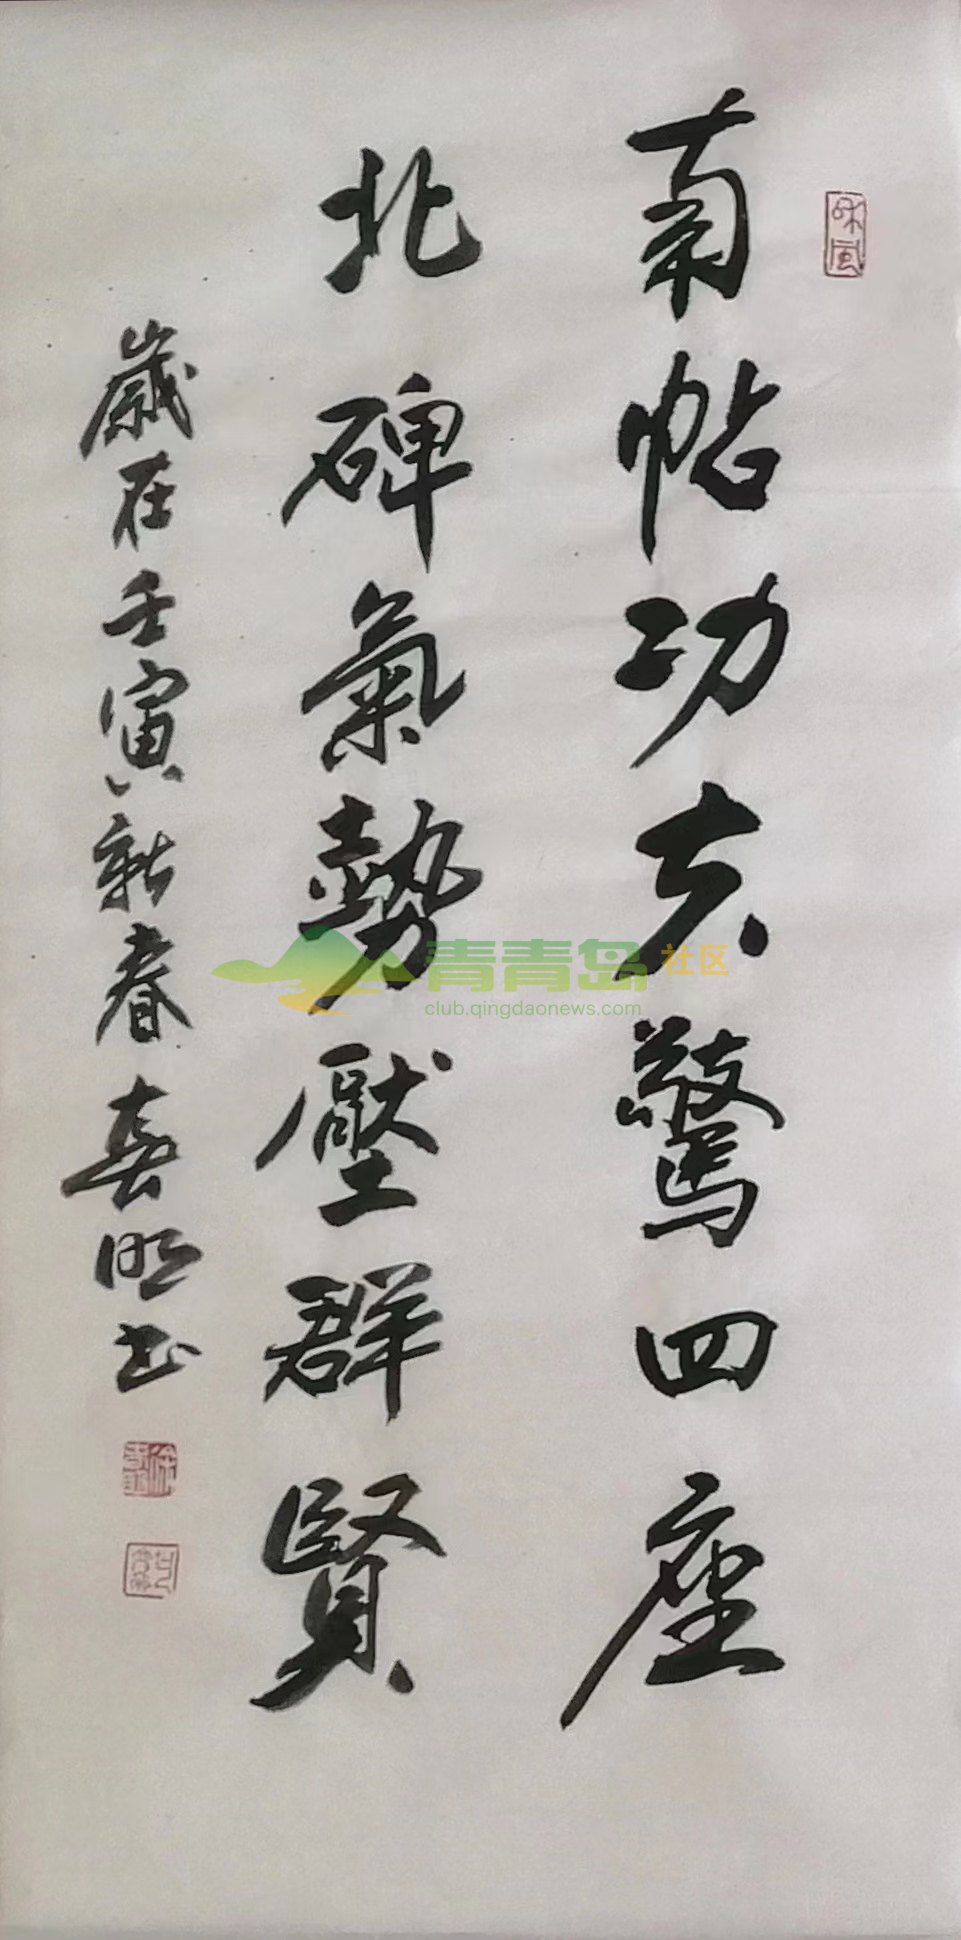 南帖功夫驚四座
北碑氣勢壓群賢
歲在壬寅新春喜明书
和风
青青岛社区
club.qingdaonews.com